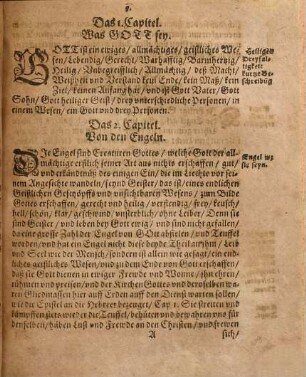 Das 1. Capitel.
Was GOTT sey.
GOTT ist ein ewiges / allmächtiges / geistliches We-
sen / Lebendig / Gerecht / Warhafftig / Barmhertzig /
Heilig / Unbegreifflich / Allmächtig / deß Macht /
Weißheit und Verstand kein Ende / kein Maß / kein
Ziel / keinen Anfang hat / und ist Gott Vater / Gott
Sohn / Gott heiliger Geist / drey unterschiedliche Personen / in
einem Wesen / ein Gott und drey Personen.
Heiligen
Dreyfal-
tigkeit
kurtze Be-
schreibung
Das 2. Capitel.
Von den Engeln.
Die Engel sind Creaturen Gottes / welche Gott der all-
mächtige zeitlich seiner Art aus nichts erschaffen / gut /
und erkändtnüs des einigen Ein / die im Liechte vor sei-
nem Angesichte wandeln / seynd Geister / das ist / eines endlichen
Geistlichen Geschöpffs und unsichtbaren Wesens / zum Bilde
Gottes erschaffen / gerecht und heilig / verständig / frey / keusch /
hell / schön / klar / geschwind / unsterblich / ohne Leiber / Denn sie
sind Geister /
Engel was
sie seyn.
worden / und hat ein Engel nicht diese beyde Theil an ihm / Leib
und Seel wie der Mensch / sondern ist allein wie gesagt / ein end-
liches geistliches Wesen / und zu dem Ende von Gott erschaffen /
daß sie Gott dienen in ewiger Freude und Wonne / ihn ehren /
rühmen und preisen / und der Kirchen Gottes und derselben wa-
ren Gliedmassen hier auf Erden auff den Dienst warten sollen /
wie die Epistel an die Hebreer bezeuget / Cap. 1. Sie streiten und
kämpffen stets wieder die Teuffel / behüten und bewahren uns für
denselben / haben Lust und Freude an den Christen / und freuen
A
sich /